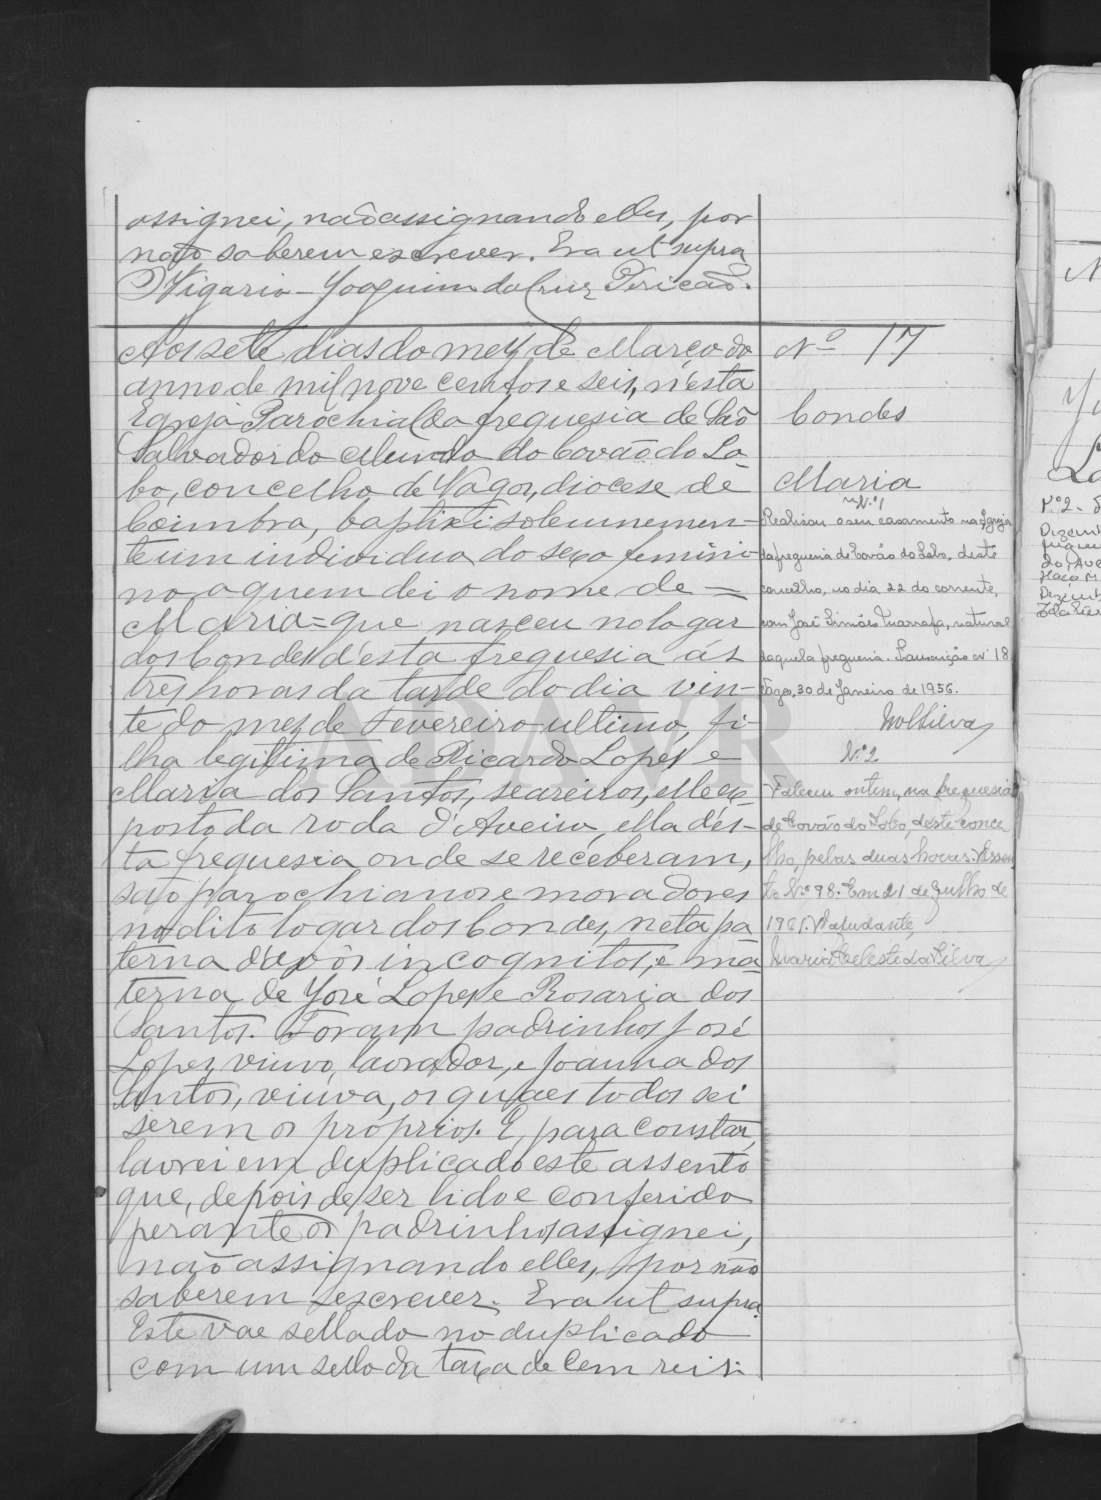 assignei, não assignando elles, por
não saberem escrever. Era ut supra
O Vigario - Joaquim da Cruz Pericão.
Aos sete dias do mez de Março do
anno de mil nove centos e seis, n'esta
Egreja Parochial da freguesia de São
Salvador do Mundo do Covão do Lo-
bo, concelho de Vagos, diocese de
Coimbra, baptizei solemnemen-
te um individuo do sexo femini-
no a quem dei o nome de =
Maria = que nasceu no logar
dos Condes d'esta freguesia ás
tres horas da tarde do dia vin-
te do mez de Fevereiro ultimo, fi-
lha legitima de Ricardo Lopes e
Maria dos Santos, seareiros, elle ex-
posto da roda d'Aveiro, ella d'es-
ta freguesia onde se receberam,
são parochianos e moradores
no dito logar dos Condes, neta pa
terna d'avós incognitos, e ma-
terna de José Lopes e Rosaria dos
Santos. Foram padrinhos José
Lopes, viuvo, lavrador, e Joanna dos
Santos, viuva, os quaes todos sei
serem os proprios. E, para constar,
lavrei em duplicado este assento
que, depois de ser lido e conferido
perante os padrinhos, assignei,
não assignando elles, por não
saberem escrever. Era ut supra.
Este vae sellado no duplicado
com um sello da taxa de cem reis.
Nº 17
Condes
Maria
N.º 1
Realizou o seu casamento na Igreja
da freguesia de Covão do Lobo, deste
concelho, no dia 22 do corrente,
com José Simões, natural
daquela freguesia. Transcrição nº 18
Vagos, 30 de Janeiro de 1956.
N.º 2
Faleceu ontem, na freguesia
de Covão do Lobo, deste conce
lho, pelas duas horas. Assen
to N.º 98. Em 21 de Julho de
A ajudante,
Maria Celeste da Silva
ADAVR